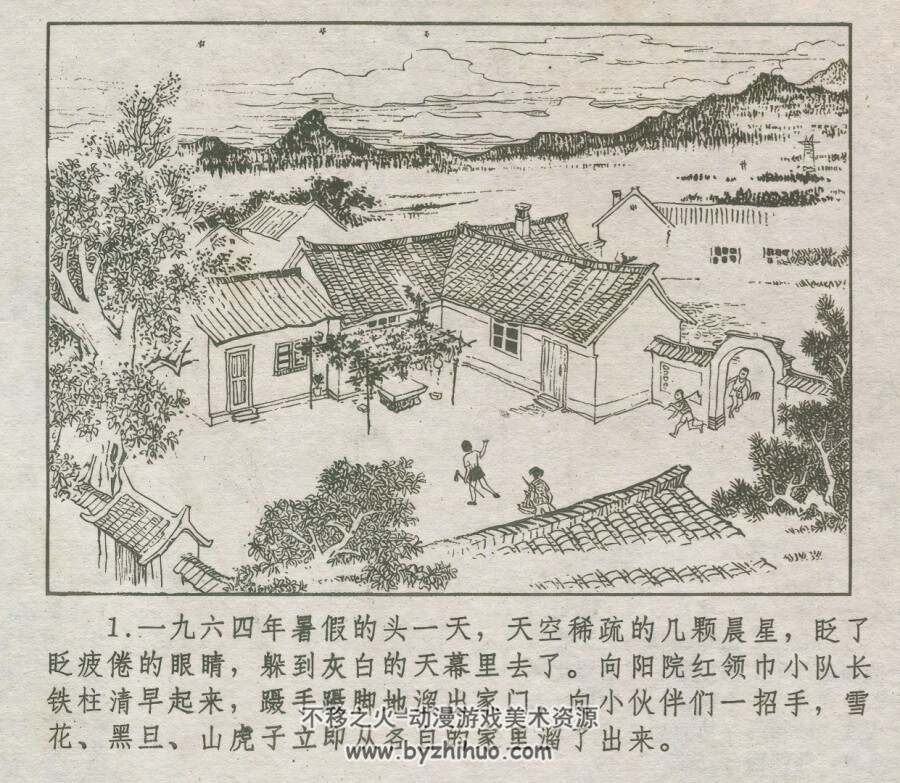 1.一九六四年暑假的头一天，天空稀疏的几颗晨星，眨了
眨疲倦的眼睛，躲到灰白的天幕里去了。向阳院红领巾小队长
铁柱清早起来，蹑手蹑脚地溜出家门，向小伙伴们一招手，雪
不移之火-动漫游戏美术资源
花、黑旦、山虎子立即从各自的家里溜了出来。
www.byzhihuo.com